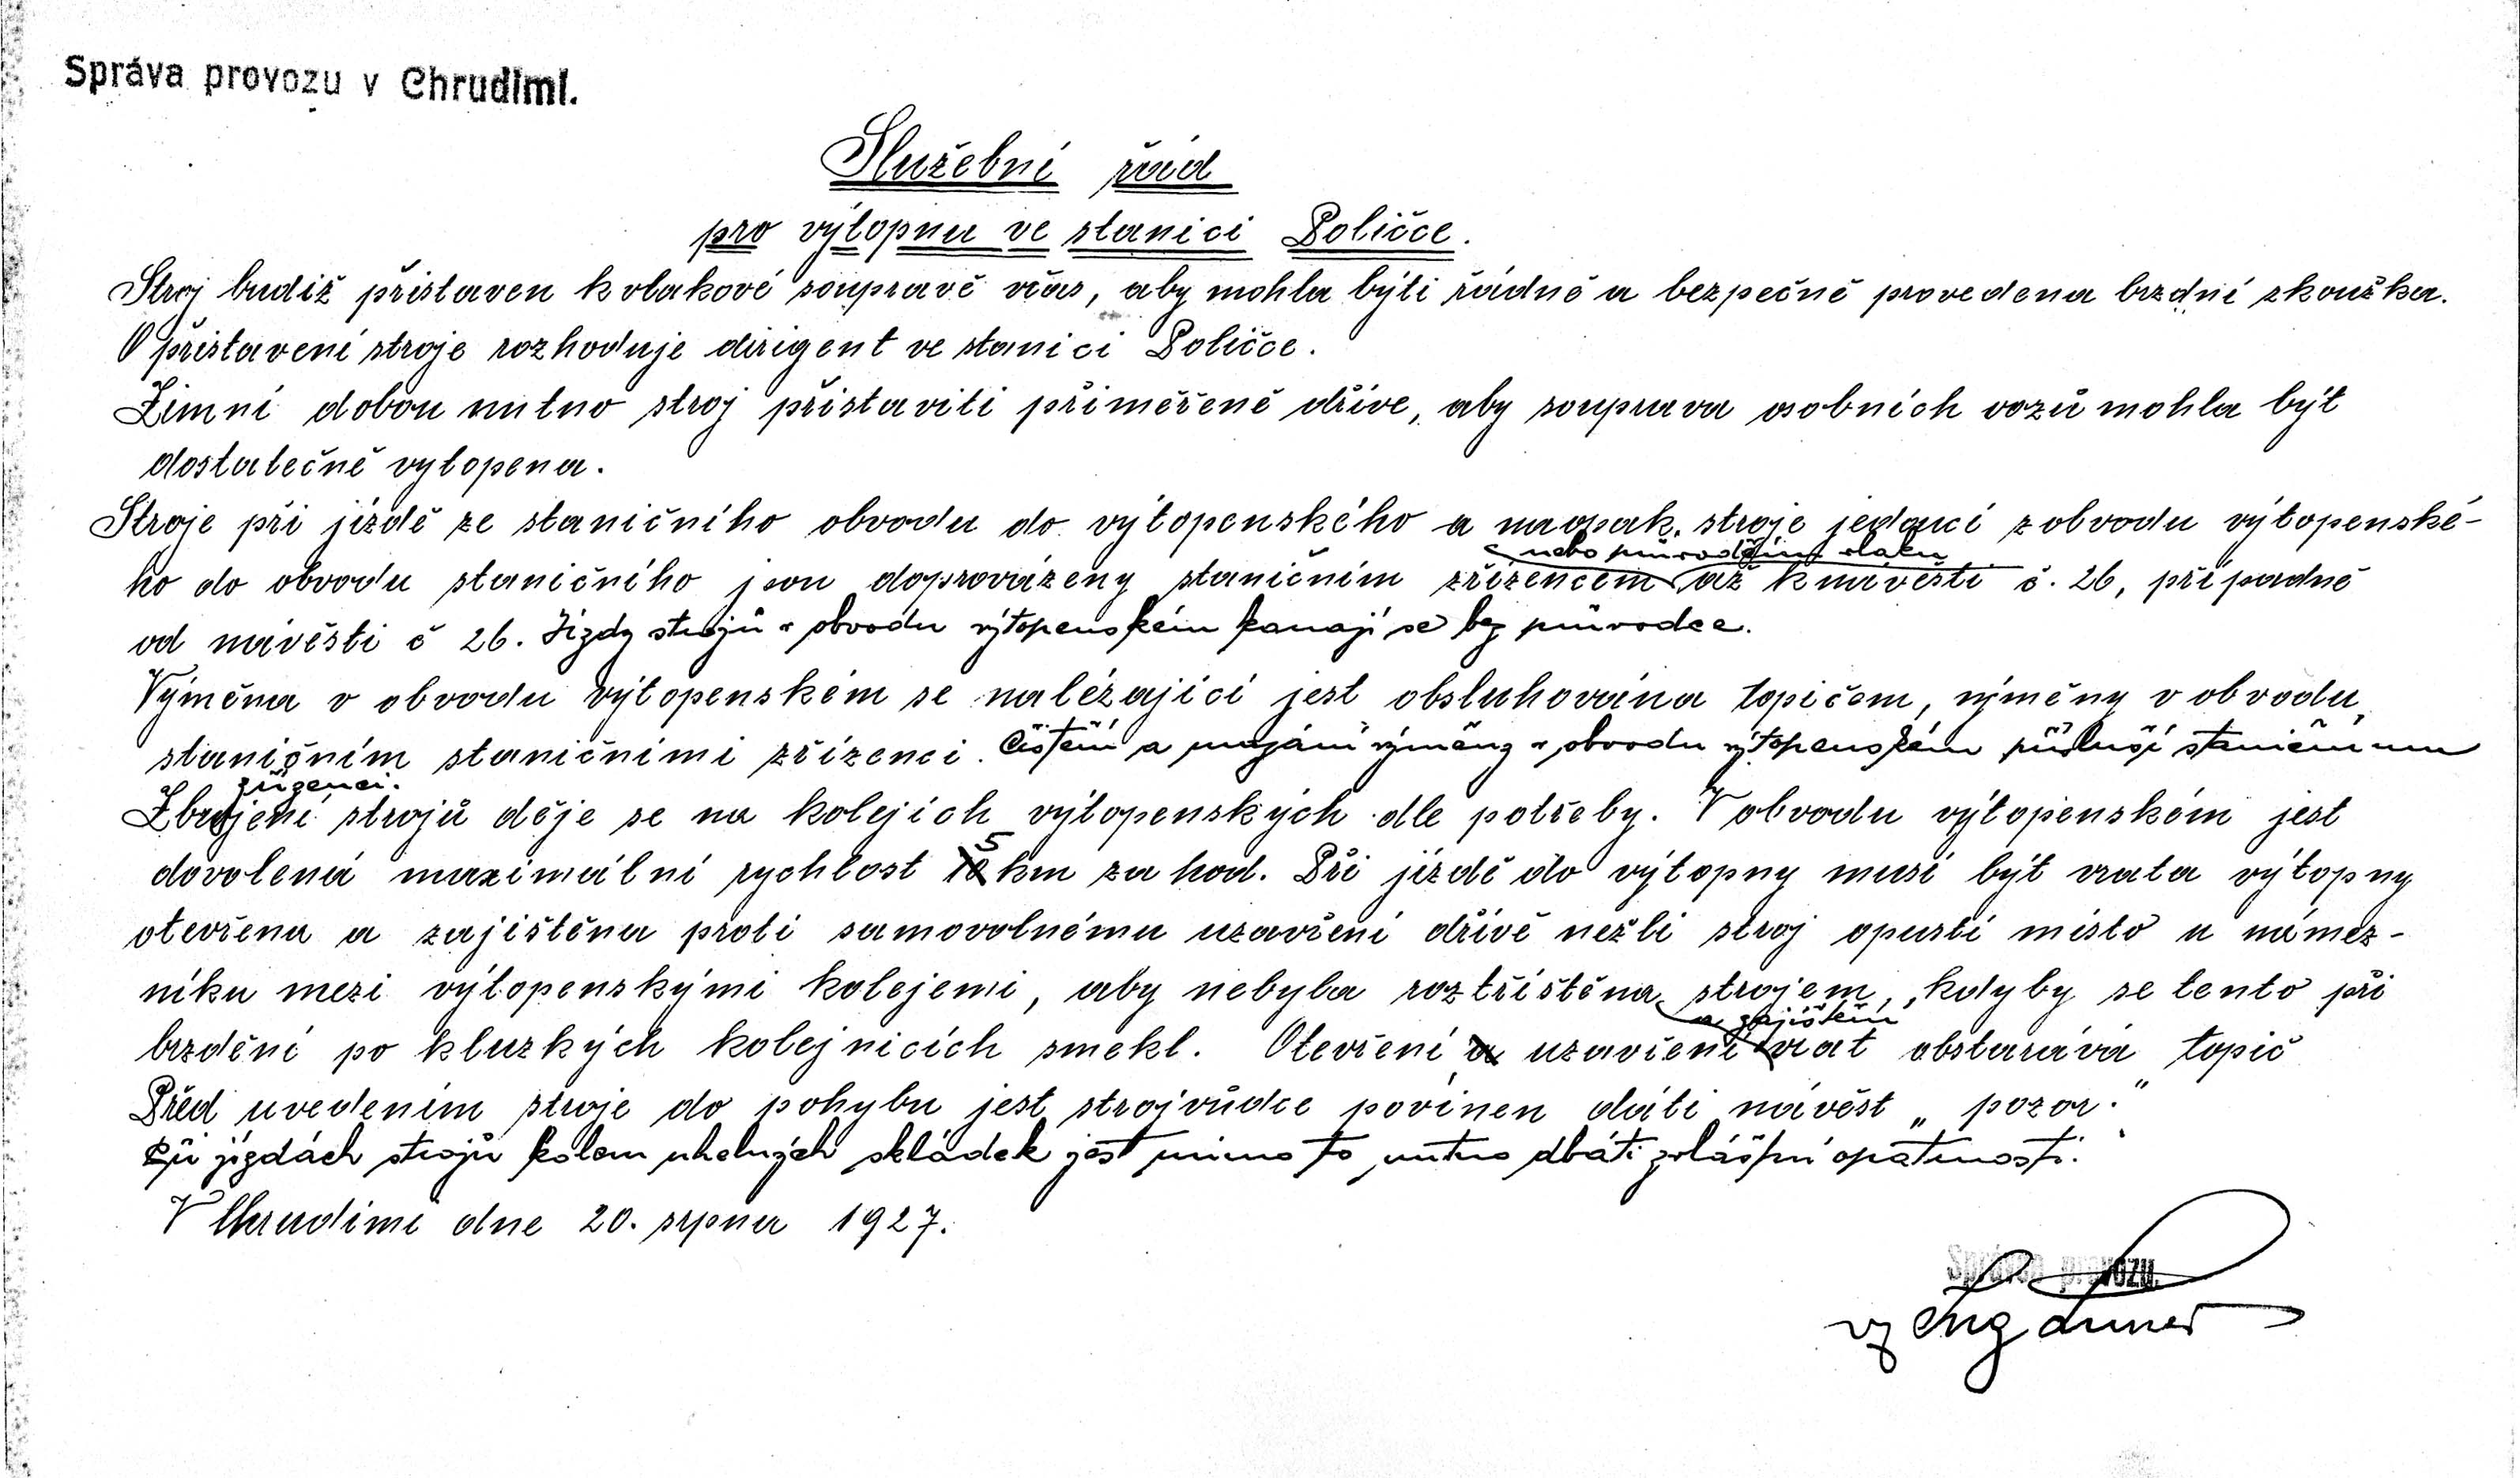 Správa provozu v Chrudimi.
Služební řád
pro výtopnu ve stanici Poličce.
Stroj budiž přistaven k vlakové soupravě včas, aby mohla býti řádně a bezpečně provedena brzdní zkouška.
O přistavení stroje rozhoduje dirigent ve stanici Poličce.
Zimní dobou nutno stroj přistaviti přiměřeně dříve, aby souprava osobních vozů mohla být
dostatečně vytopena.
Stroje při jízdě ze staničního obvodu do výtopenského a naopak stroje jedoucí z obvodu výtopenské-
nebo průvodčím vlaku
ho do obvodu staničního jsou doprovázeny staničním zřízencem až k návěsti č. 26, případně
od návěsti č 26. Jízdy strojů v obvodu výtopenském konají se bez průvodce.
Výměna v obvodu výtopenském se nalézající jest obsluhována topičem, výměny v obvodu
staničním staničními zřízenci. Čištění a mazání výměny v obvodu výtopenském přísluší staničnímu
zřízenci.
Zbrojení strojů děje se na kolejích výtopenských dle potřeby. V obvodu výtopenském jest
dovolená maximální rychlost 5 km za hod. Při jízdě do výtopny musí být vrata výtopny
otevřena a zajištěna proti samovolnému uzavření dřívě nežli stroj opustí místo u námez-
níku mezi výtopenskými kolejemi, aby nebyla roztříštěna strojem, kdyby se tento při
a zajištění
brzdění po kluzkých kolejnicích smekl. Otevření, uzavření vrat obstarává topič
Před uvedením stroje do pohybu jest strojvůdce povinen dáti návěst „pozor."
Při jízdách strojů kolem uhelných skládek jest mimo to nutno dbáti zvláštní opatrnosti.
V Chrudimi dne 20. srpna 1927.
Správce provozu.
vz Ing